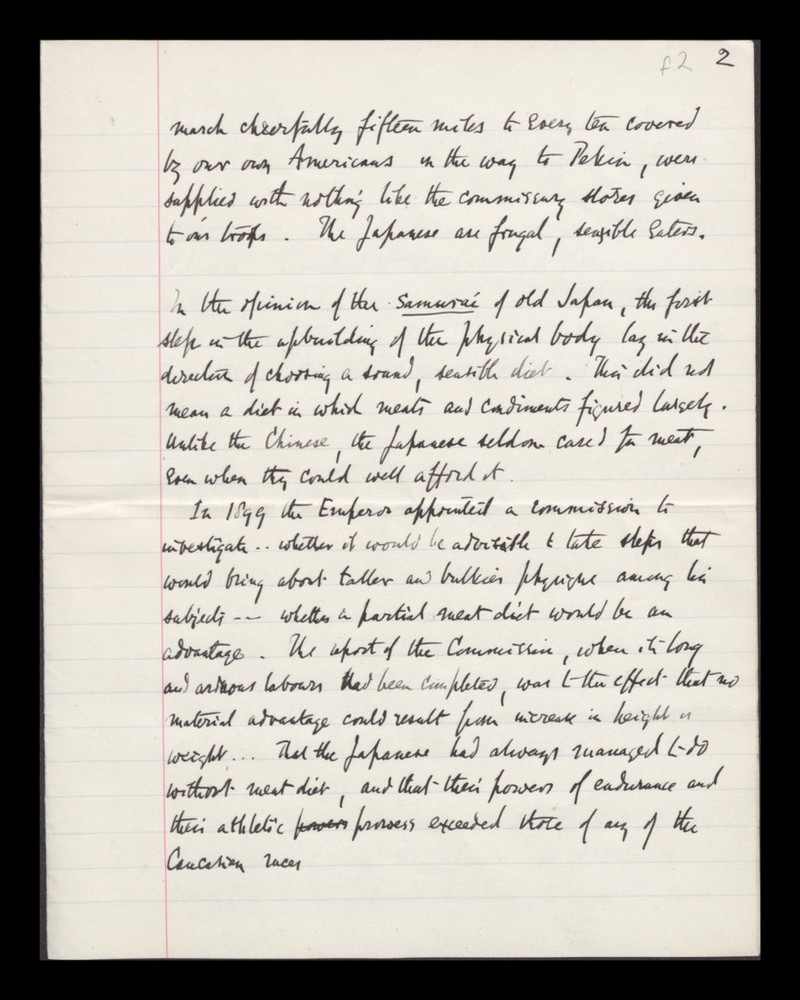 f2 2
march cheerfully fifteen miles to every ten covered
by our own Americans in the way to Pekin, were
supplied with nothing like the commissary stores given
to our troops. The Japanese are frugal, sensible eaters.
In the opinion of the Samurai of old Japan, the first
step in the upbuilding of the physical body lay in the
direction of choosing a sound, sensible diet. This did not
mean a diet in which meats and condiments figured largely.
Unlike the Chinese, the Japanese seldom cared for meat,
even when they could well afford it.
In 1899 the Emperor appointed a commission to
investigate .. whether it would be advisable to take steps that
would bring about taller and bulkier physique among his
subjects -- whether a partial meat diet would be an
advantage. The report of the Commission, when its long
and arduous labours had been completed, was to the effect that no
material advantage could result from increase in height or
weight... That the Japanese had always managed to do
without meat diet, and that their powers of endurance and
their athletic powers prowess exceeded those of any of the
Caucasian races